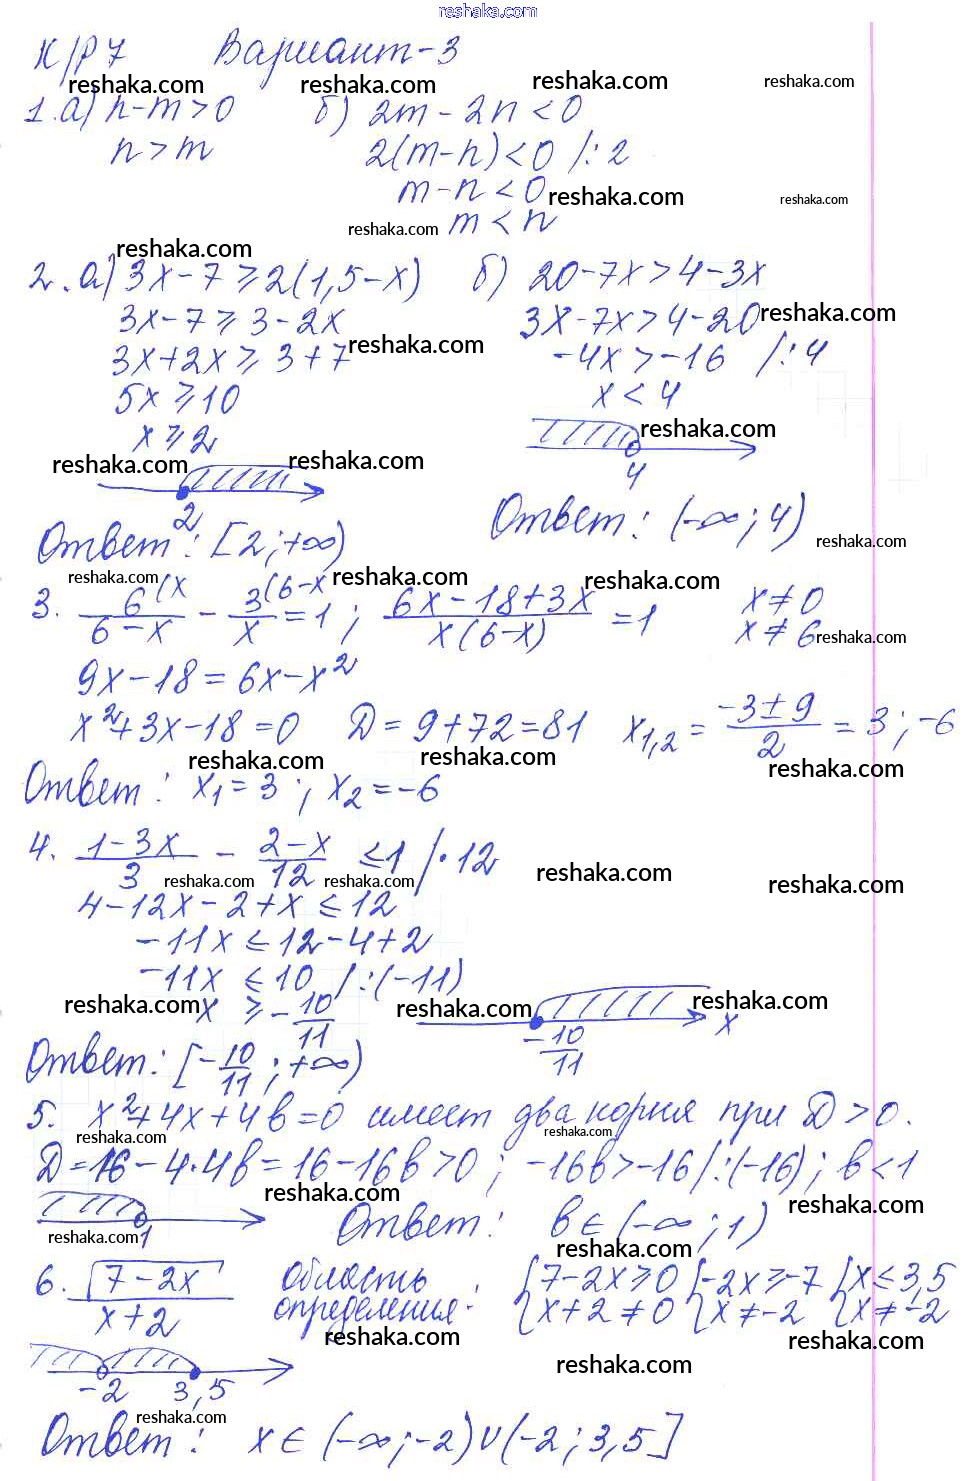 reshaka.com
К/Р 7 Вариант-3
reshaka.com reshaka.com reshaka.com reshaka.com
1. а) n-m>0 б) 2m-2n<0
n>m 2(m-n)<0 /:2
m-n<0 reshaka.com reshaka.com
reshaka.com m<n
reshaka.com
2. а) 3x-7⩾2(1,5-x) б) 20-7x>4-3x
3x-7⩾3-2x 3x-7x>4-20 reshaka.com
3x+2x⩾3+7 reshaka.com -4x>-16 /:4
5x⩾10 x<4
x⩾2 reshaka.com
reshaka.com reshaka.com
2 4
Ответ: [2;+∞) Ответ: (-∞;4) reshaka.com
reshaka.com reshaka.com reshaka.com
3. 6(x/(6-x) - 3(6-x/x = 1; (6x-18+3x)/(x(6-x)) = 1 x≠0
x≠6 reshaka.com
9x-18=6x-x²
x²+3x-18=0 D=9+72=81 x₁,₂ = (-3±9)/2 = 3;-6
reshaka.com reshaka.com reshaka.com
Ответ: x₁=3; x₂=-6
4. (1-3x)/3 - (2-x)/12 ⩽1 /·12
reshaka.com reshaka.com reshaka.com reshaka.com
4-12x-2+x⩽12
-11x⩽12-4+2
-11x⩽10 /:(-11)
reshaka.com x⩾-10/11 reshaka.com reshaka.com
-10/11 x
Ответ: [-10/11;+∞)
5. x²+4x+4b=0 имеет два корня при D>0.
reshaka.com reshaka.com
D=16-4·4b=16-16b>0; -16b>-16 /:(-16); b<1
reshaka.com reshaka.com
1 Ответ: b∈(-∞;1)
reshaka.com reshaka.com
6. √(7-2x)/(x+2) область определения: {7-2x⩾0 {-2x⩾-7 {x⩽3,5
{x+2≠0 {x≠-2 {x≠-2
reshaka.com reshaka.com
reshaka.com
-2 3,5
reshaka.com
Ответ: x∈(-∞;-2)∪(-2;3,5]